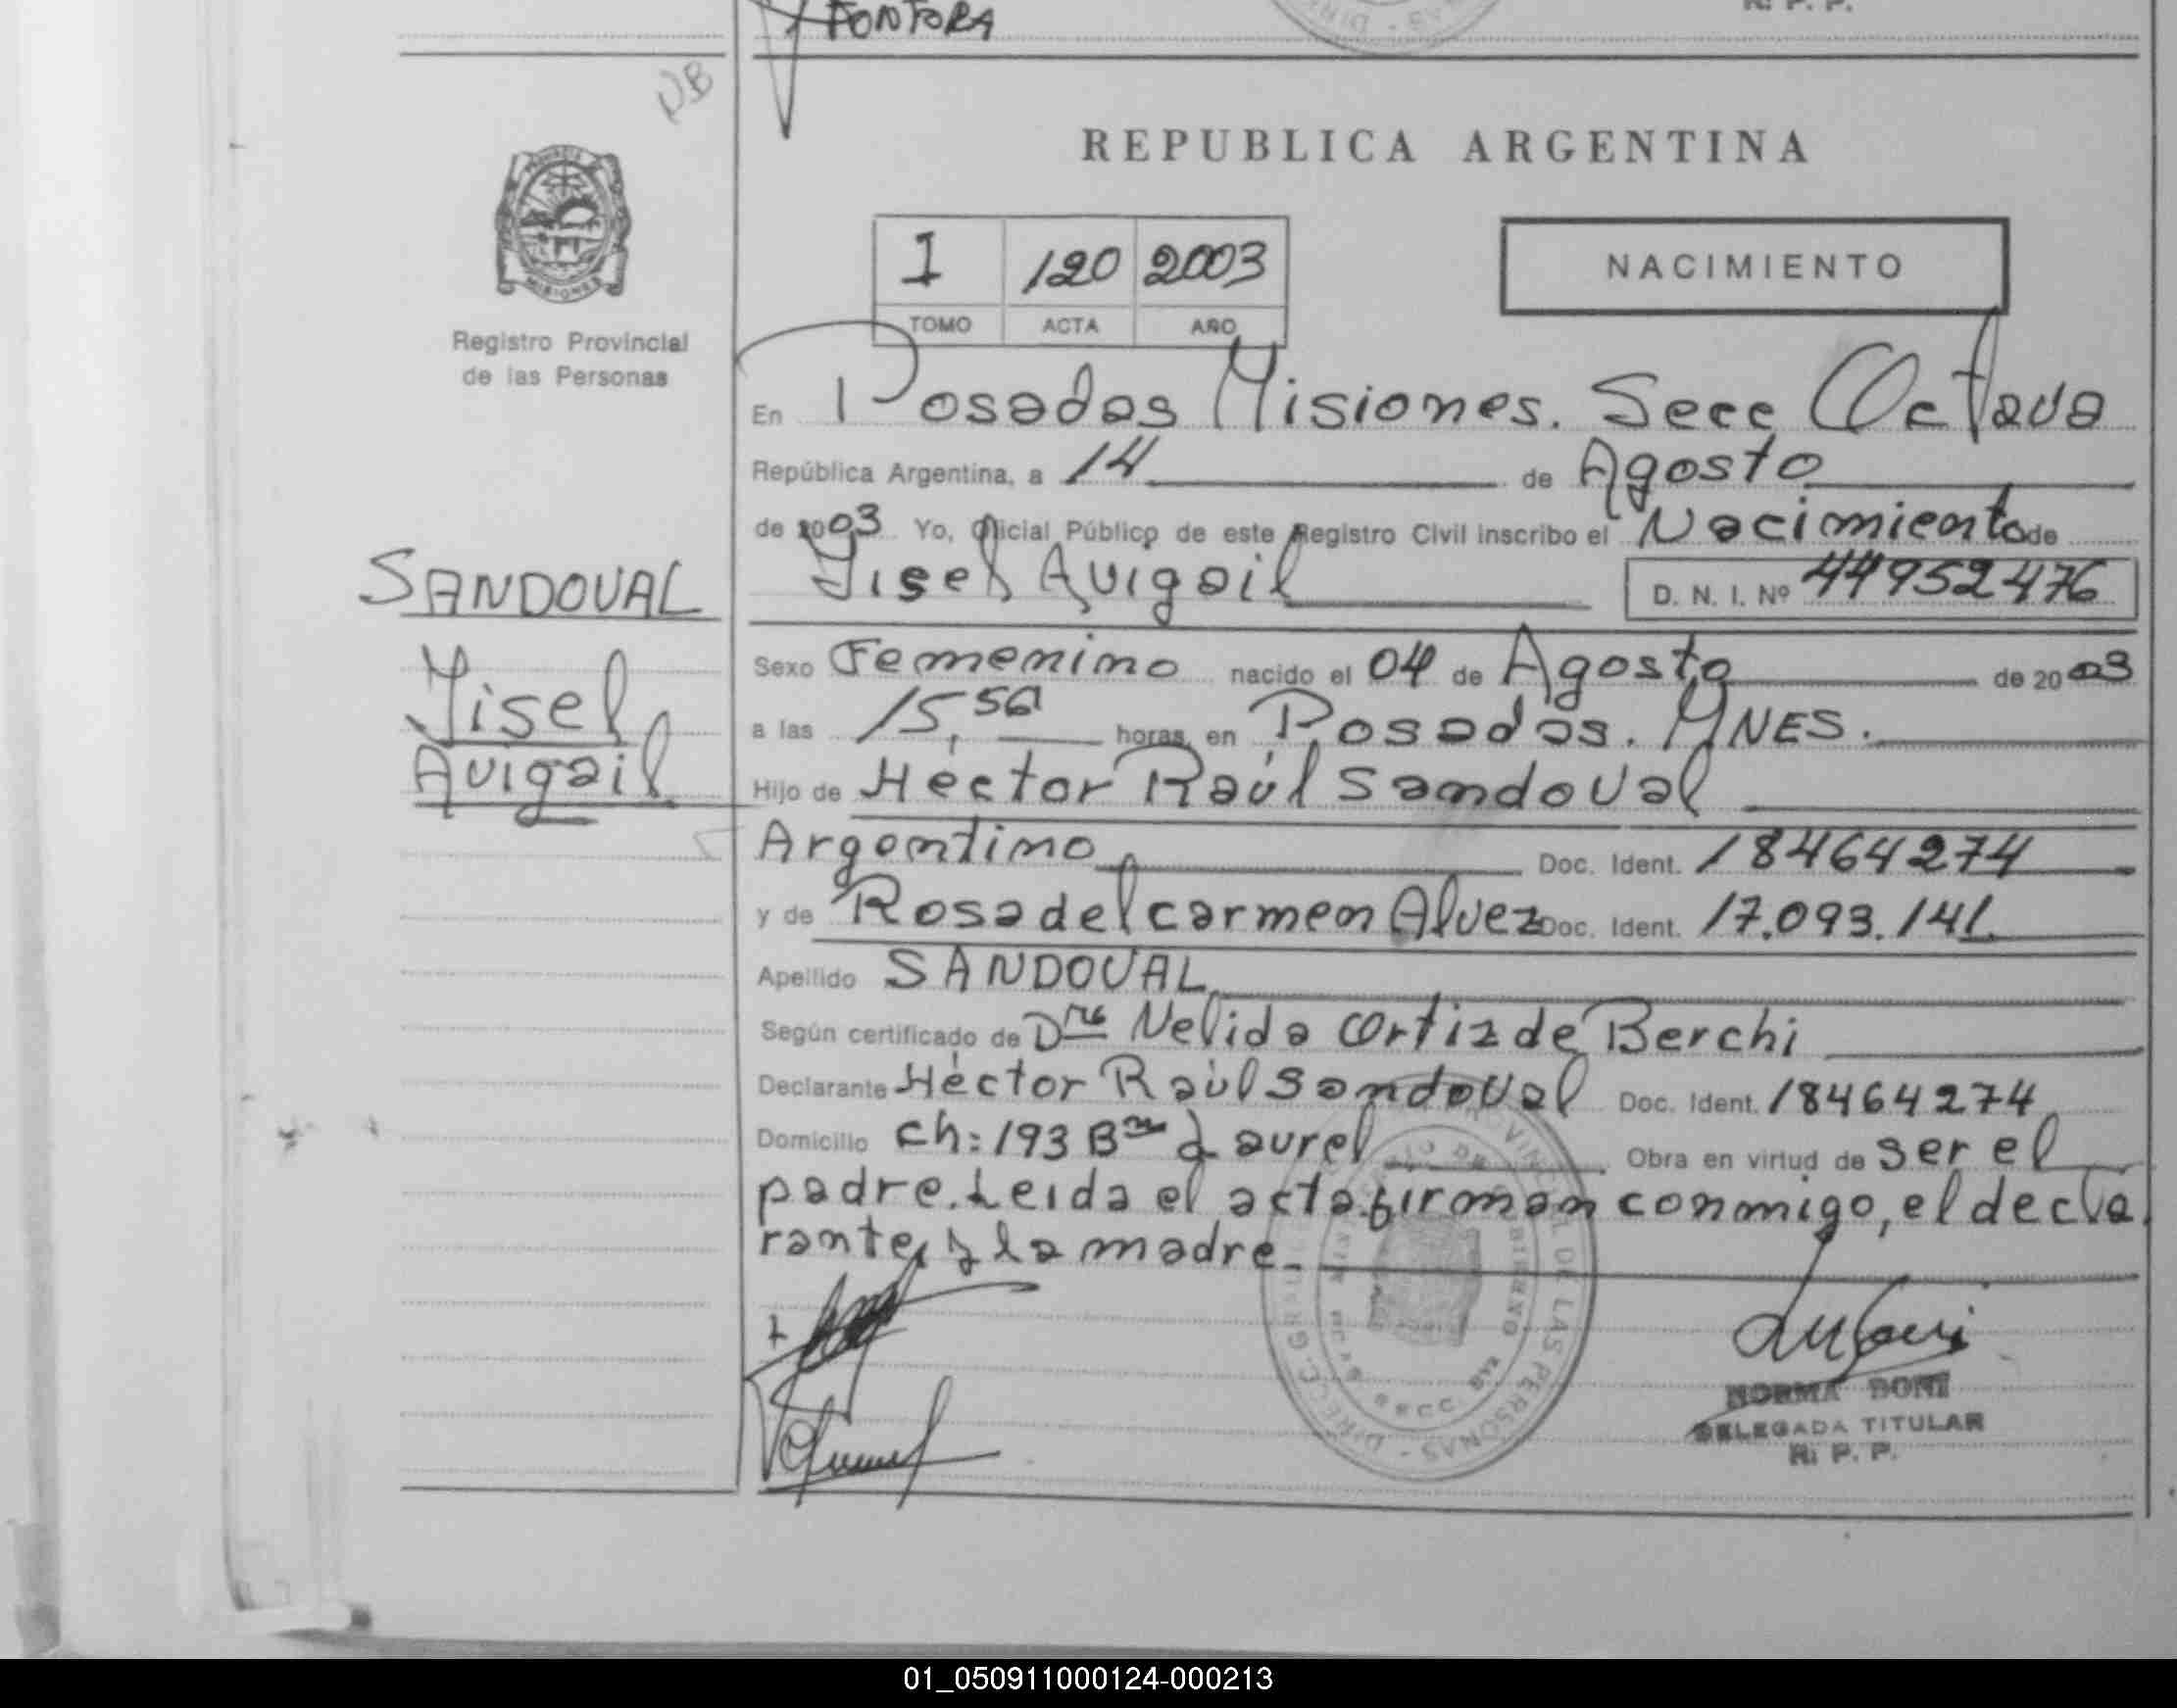 FONTORA
R. P. P.
NB
REPUBLICA ARGENTINA
I 120 2003
TOMO ACTA AÑO
NACIMIENTO
MISIONES
Registro Provincial
de las Personas
En Posadas Misiones. Secc Octava
República Argentina, a 14 de Agosto
de 2003 Yo, Oficial Público de este Registro Civil inscribo el Nacimiento de
Yisel Avigail D. N. I. Nº 44952476
SANDOVAL
Yisel
Avigail
Sexo Femenino nacido el 04 de Agosto de 2003
a las 15,50 horas, en Posadas. MNES.
Hijo de Héctor Raúl Sandoval
Argentino Doc. Ident. 18464274
y de Rosa del carmen Alvez Doc. Ident. 17.093.141
Apellido SANDOVAL
Según certificado de Dra Nelida Ortiz de Berchi
Declarante Héctor Raúl Sandoval Doc. Ident. 18464274
Domicilio Ch: 193 Bro Laurel Obra en virtud de ser el
padre. Leida el acta firman conmigo, el decla
rante y la madre.
NORMA DONI
DELEGADA TITULAR
R. P. P.
01_050911000124-000213